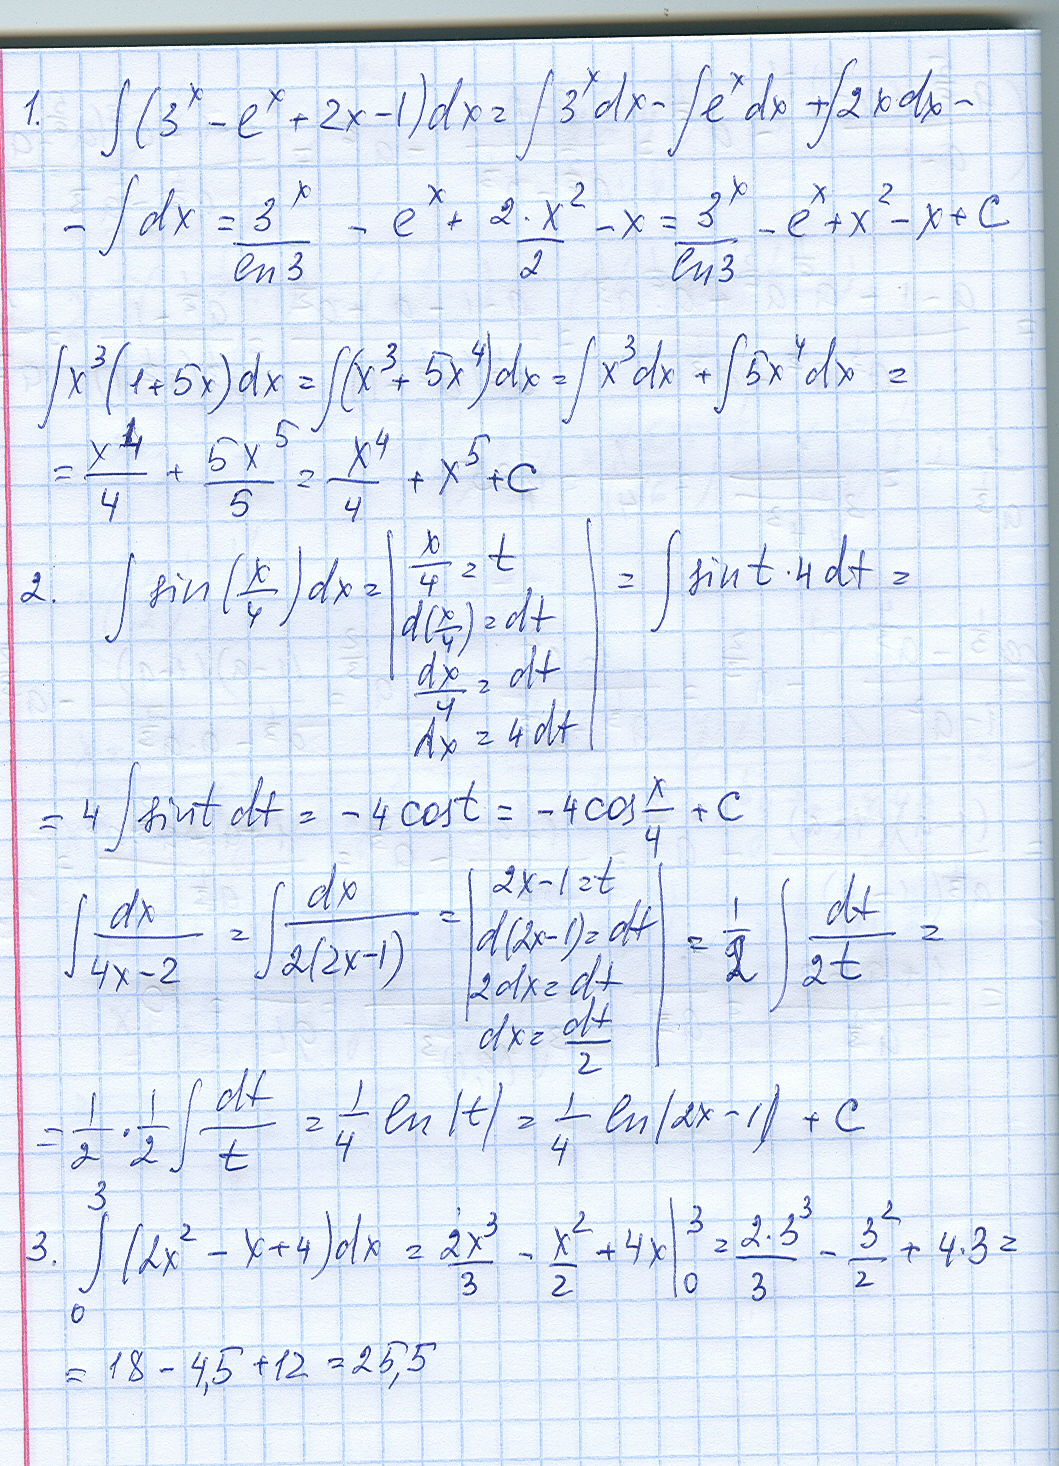 1. ∫(3^x - e^x + 2x - 1)dx = ∫3^x dx - ∫e^x dx + ∫2x dx -
- ∫dx = 3^x/ln3 - e^x + 2·x^2/2 - x = 3^x/ln3 - e^x + x^2 - x + C
∫x^3(1+5x)dx = ∫(x^3 + 5x^4)dx = ∫x^3 dx + ∫5x^4 dx =
= x^4/4 + 5x^5/5 = x^4/4 + x^5 + C
2. ∫sin(x/4)dx = | x/4 = t | = ∫sin t · 4dt =
d(x/4) = dt
dx/4 = dt
dx = 4dt
= 4∫sin t dt = -4cos t = -4cos x/4 + C
∫dx/(4x-2) = ∫dx/(2(2x-1)) = | 2x-1=t | = 1/2 ∫dt/(2t) =
d(2x-1)=dt
2dx=dt
dx=dt/2
= 1/2 · 1/2 ∫dt/t = 1/4 ln|t| = 1/4 ln|2x-1| + C
3. ∫_0^3 (2x^2 - x+4)dx = 2x^3/3 - x^2/2 + 4x |_0^3 = 2·3^3/3 - 3^2/2 + 4·3 =
= 18 - 4,5 + 12 = 25,5